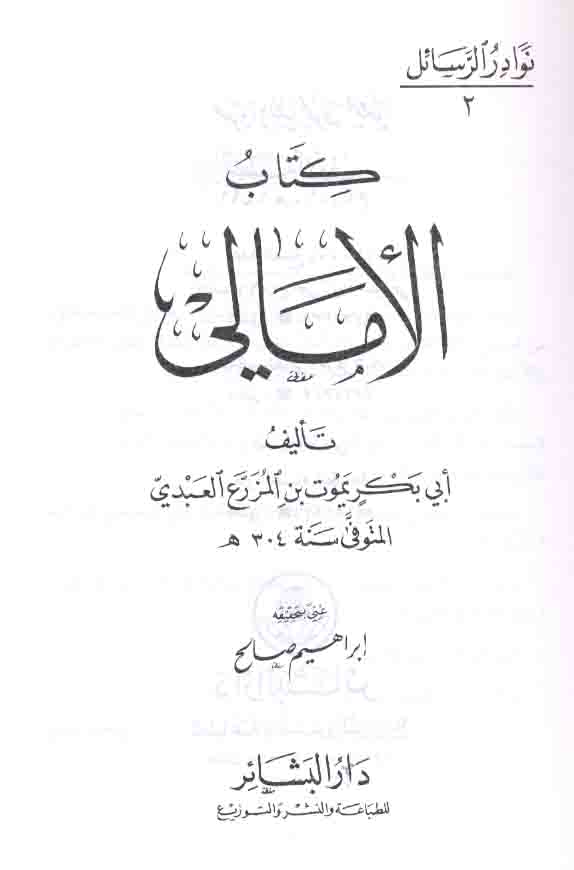 نَوَادِرُ الرَّسَائِل
٢
كِتَابُ
الأَمَالِي
تَأليفُ
أبي بَكْرٍ يَمُوت بنِ المُزَرَّع العَبْديّ
المتوَفَّى سَنَة ٣٠٤ هـ
عُني بتحقيقه
إبراهيم صَالح
دَارُ البَشَائِر
للطبَاعَة والنَّشْر والتَّوزيْع